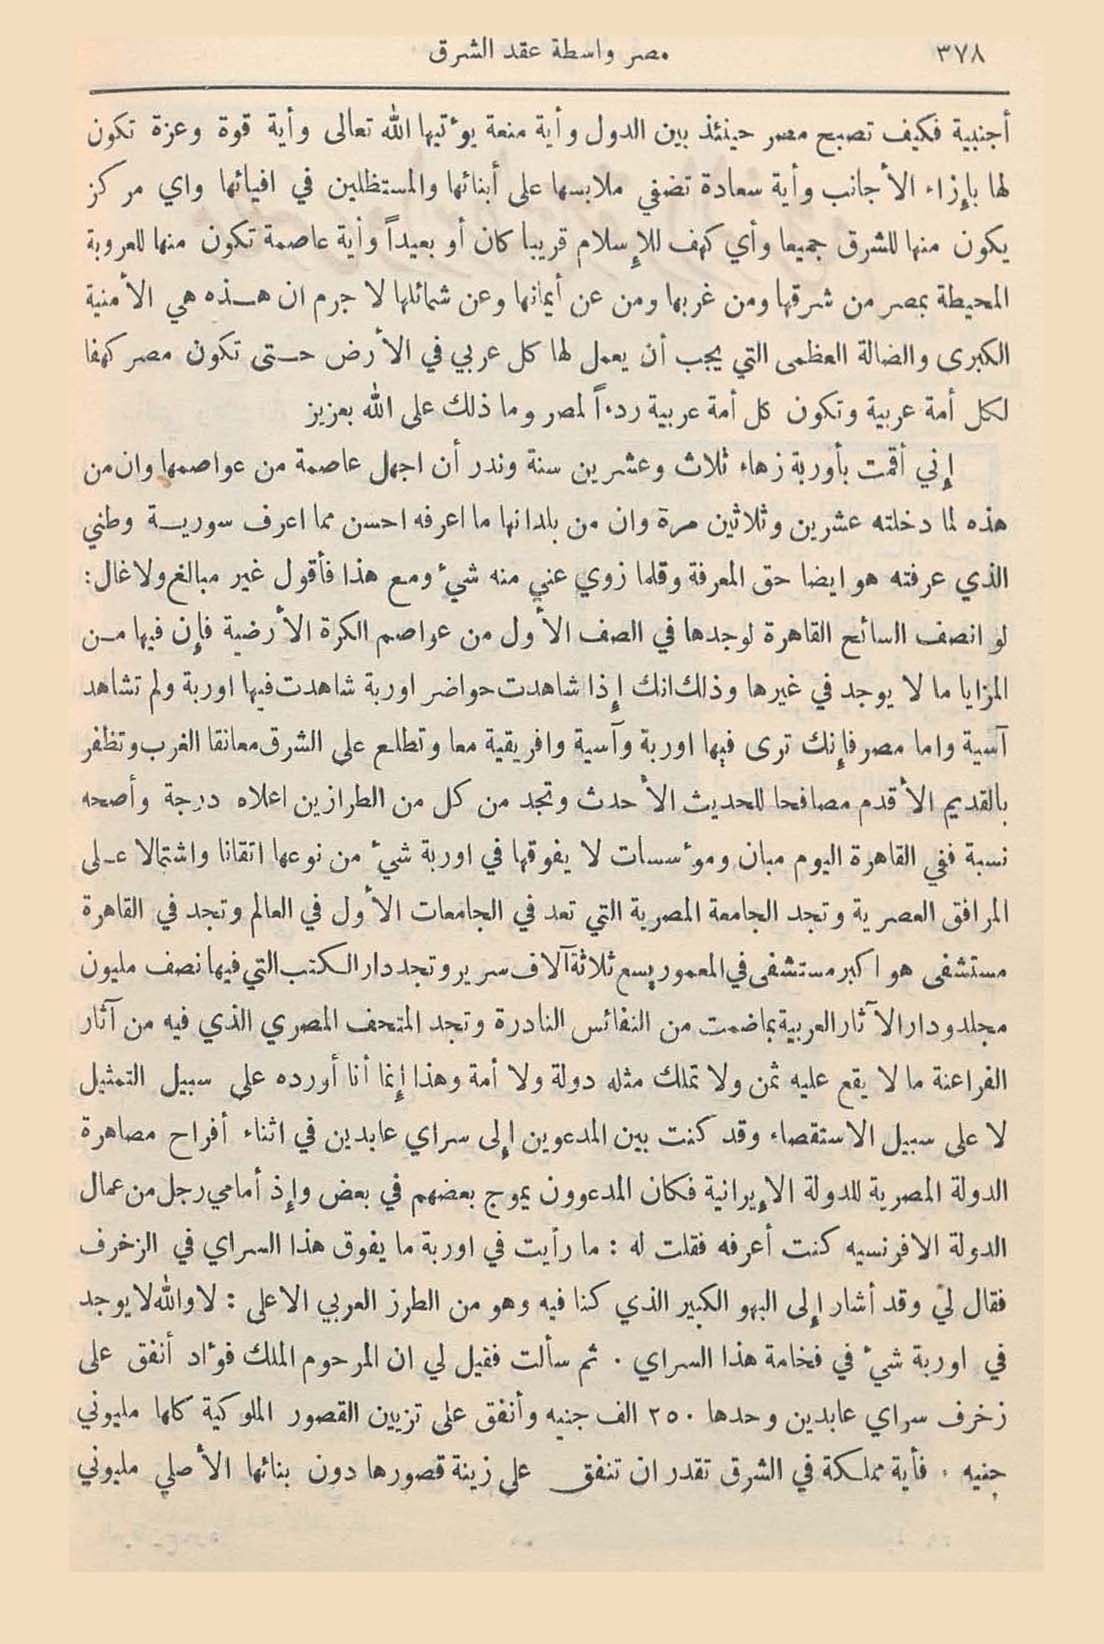 ٣٧٨
مصر واسطة عقد الشرق
أجنبية فكيف تصبح مصر حينئذ بين الدول وأية منعة يؤتيها الله تعالى وأية قوة وعزة تكون
لها بإزاء الأجانب وأية سعادة تضفي ملابسها على أبنائها والمستظلين في افيائها واي مركز
يكون منها للشرق جميعا وأي كهف للإسلام قريبا كان أو بعيداً وأية عاصمة تكون منها للعروبة
المحيطة بمصر من شرقها ومن غربها ومن عن أيمانها وعن شمائلها لا جرم ان هـذه هي الأمنية
الكبرى والضالة العظمى التي يجب أن يعمل لها كل عربي في الأرض حـتى تكون مصر كهفا
لكل أمة عربية وتكون كل أمة عربية ردءاً لمصر وما ذلك على الله بعزيز
إني أقمت بأوربة زهاء ثلاث وعشرين سنة وندر أن اجهل عاصمة من عواصمها وان من
هذه لما دخلته عشرين وثلاثين مرة وان من بلدانها ما اعرفه احسن مما اعرف سوريـة وطني
الذي عرفته هو ايضا حق المعرفة وقلما زوي عني منه شيء ومع هذا فأقول غير مبالغ ولا غال:
لو انصف السائح القاهرة لوجدها في الصف الأول من عواصم الكرة الأرضية فإن فيها مـن
المزايا ما لا يوجد في غيرها وذلك انك إذا شاهدت حواضر اوربة شاهدت فيها اوربة ولم تشاهد
آسية واما مصر فإنك ترى فيها اوربة وآسية وافريقية معا وتطلع على الشرق معانقا الغرب وتظفر
بالقديم الأقدم مصافحا للحديث الأحدث وتجد من كل من الطرازين اعلاه درجة وأصحه
نسبة ففي القاهرة اليوم مبان ومؤسسات لا يفوقها في اوربة شيء من نوعها اتقانا واشتمالا عـلى
المرافق العصرية وتجد الجامعة المصرية التي تعد في الجامعات الأول في العالم وتجد في القاهرة
مستشفى هو اكبر مستشفى في المعمور يسع ثلاثة آلاف سرير وتجد دار الكتب التي فيها نصف مليون
مجلد ودار الآثار العربية بما ضمت من النفائس النادرة وتجد المتحف المصري الذي فيه من آثار
الفراعنة ما لا يقع عليه ثمن ولا تملك مثله دولة ولا أمة وهذا إنما أنا أورده على سبيل التمثيل
لا على سبيل الاستقصاء وقد كنت بين المدعوين إلى سراي عابدين في اثناء أفراح مصاهرة
الدولة المصرية للدولة الإيرانية فكان المدعوون يموج بعضهم في بعض وإذ أمامي رجل من عمال
الدولة الافرنسيه كنت أعرفه فقلت له : ما رأيت في اوربة ما يفوق هذا السراي في الزخرف
فقال لي وقد أشار إلى البهو الكبير الذي كنا فيه وهو من الطرز العربي الاعلى : لا والله لا يوجد
في اوربة شيء في فخامة هذا السراي . ثم سألت فقيل لي ان المرحوم الملك فؤاد أنفق على
زخرف سراي عابدين وحدها ٢٥٠ الف جنيه وأنفق على تزيين القصور الملوكية كلها مليوني
جنيه . فأية مملكة في الشرق تقدر ان تنفق على زينة قصورها دون بنائها الأصلي مليوني